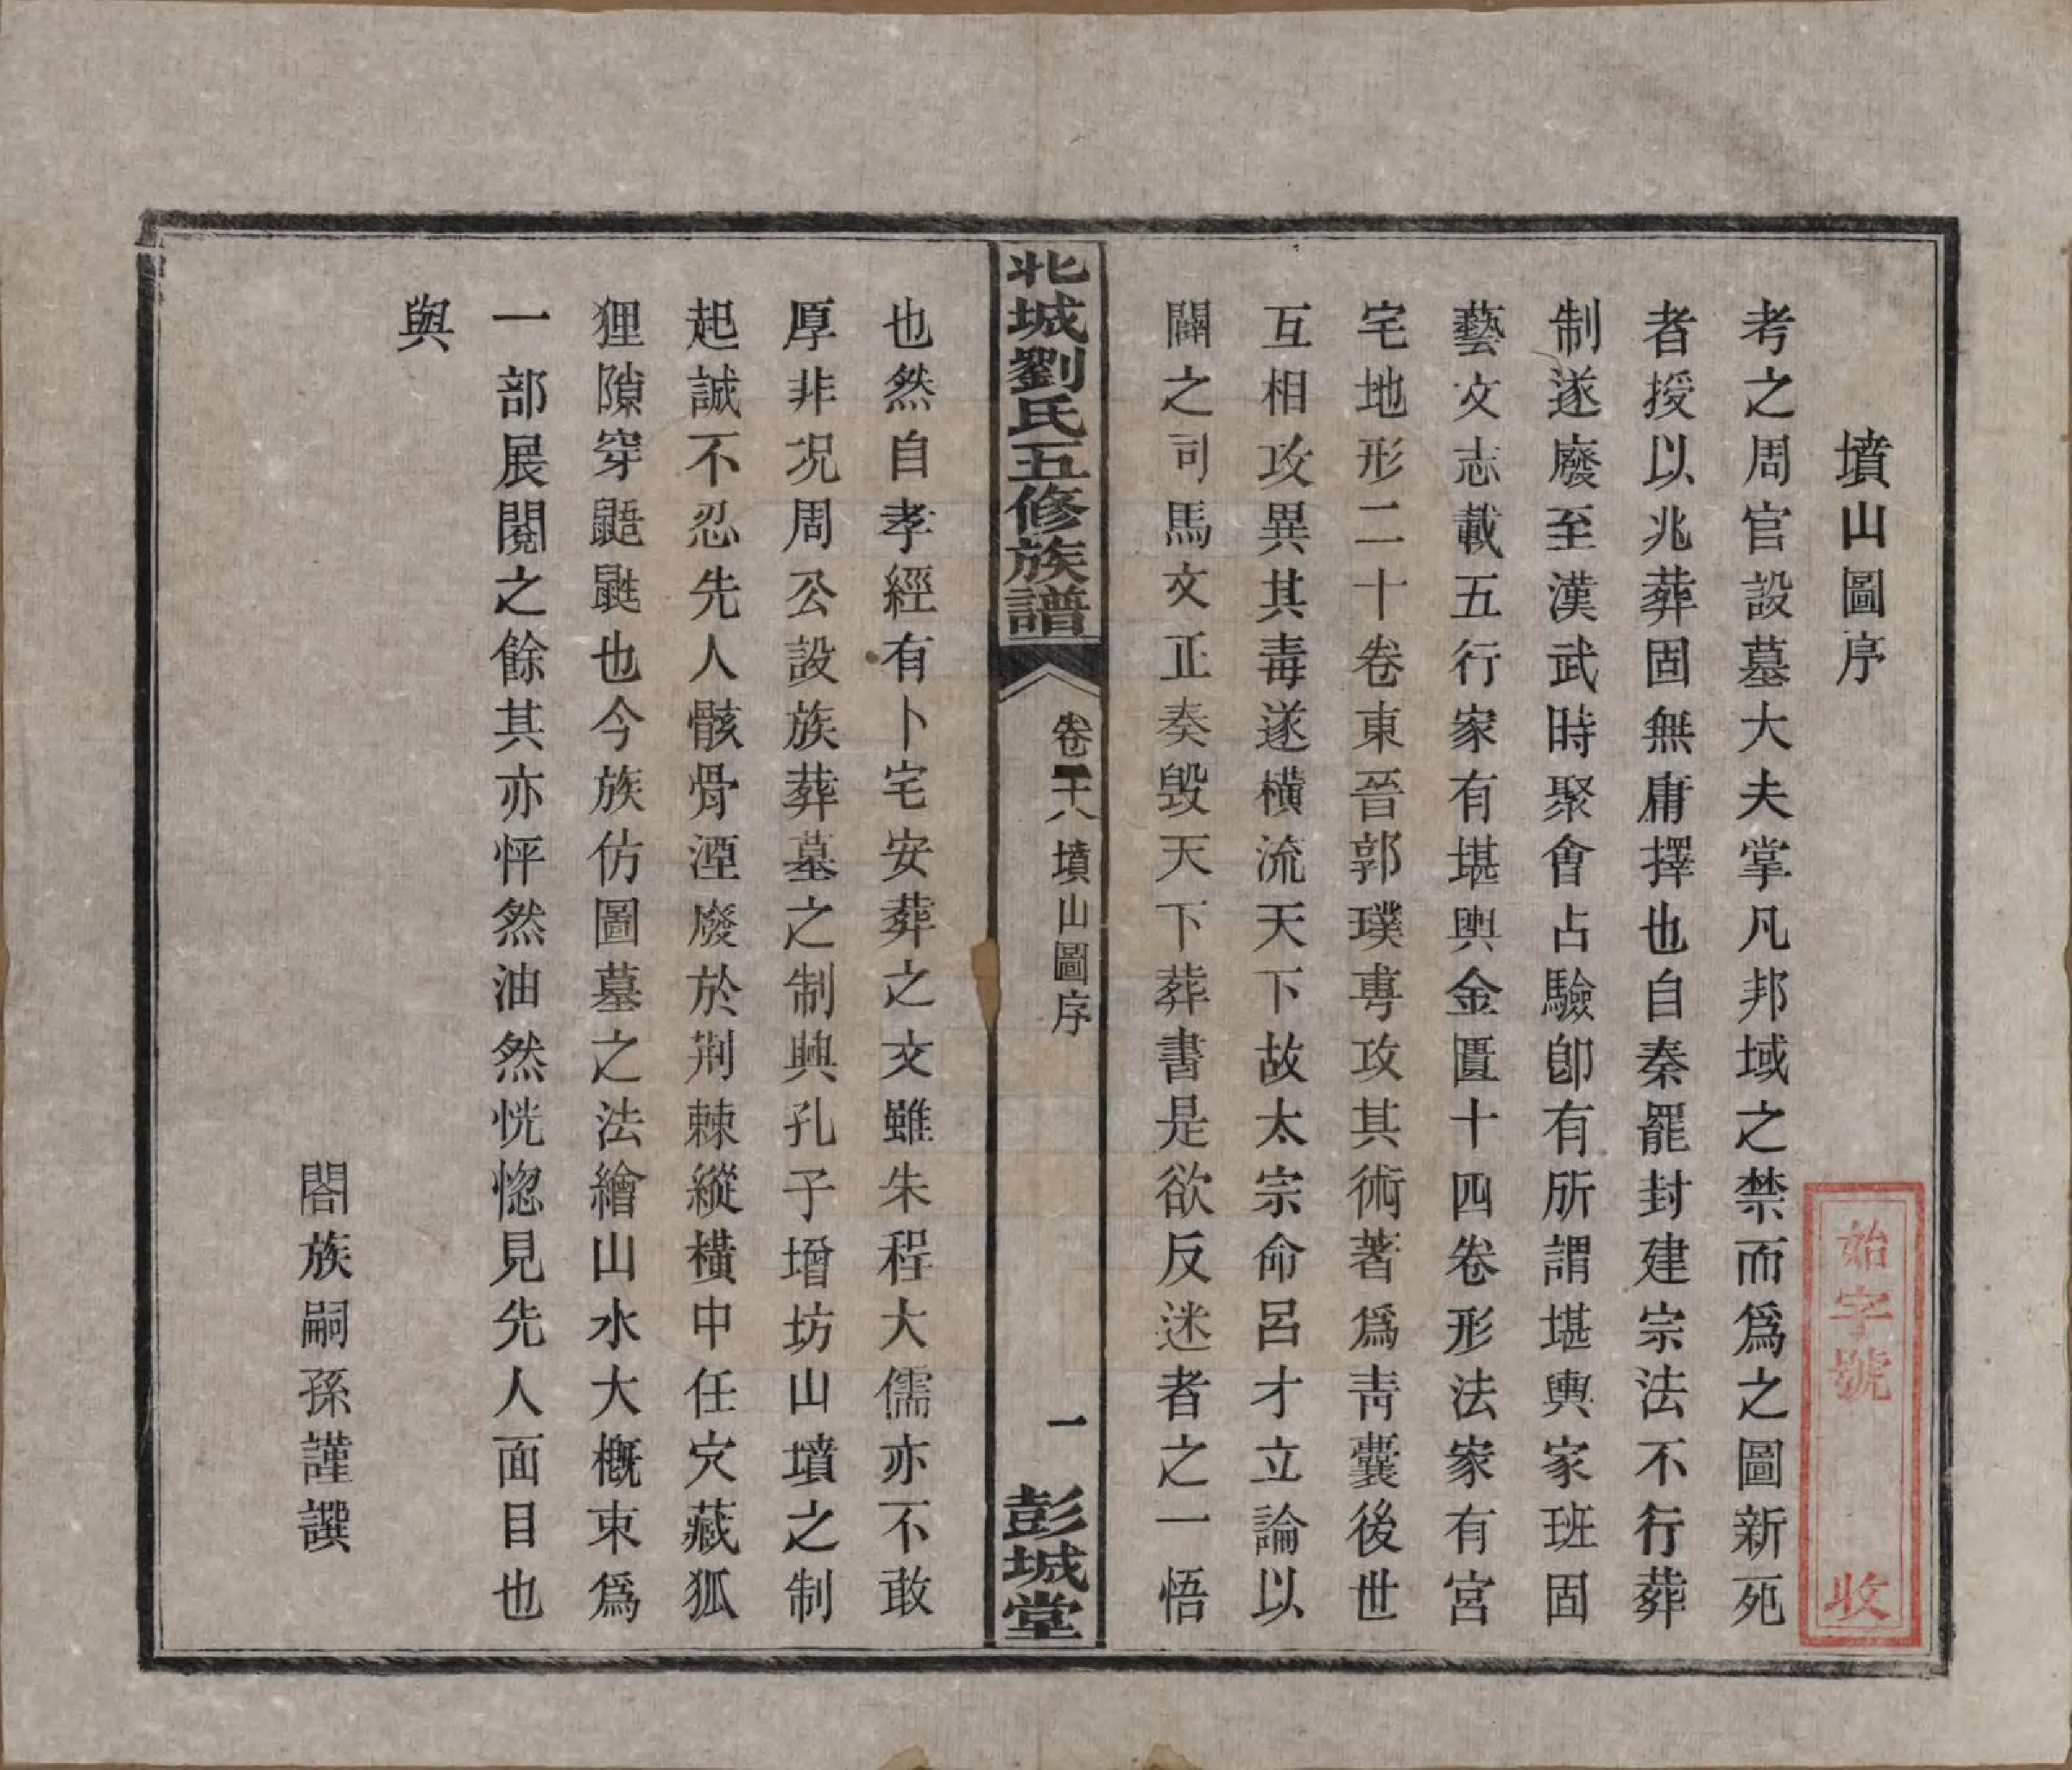 墳山圖序
考之周官設墓大夫掌凡邦域之禁而爲之圖新死
者授以兆葬固無庸擇也自秦罷封建宗法不行葬
制遂廢至漢武時聚會占驗卽有所謂堪輿家班固
藝文志載五行家有堪輿金匱十四卷形法家有宮
宅地形二十卷東晉郭璞專攻其術著爲靑囊後世
互相攻異其毒遂橫流天下故太宗命呂才立論以
闢之司馬文正奏毁天下葬書是欲反迷者之一悟
北城劉氏五修族譜
卷二十八 墳山圖序
一
彭城堂
也然自孝經有卜宅安葬之文雖朱程大儒亦不敢
厚非况周公設族葬墓之制興孔子增坊山墳之制
起誠不忍先人骸骨湮廢於荆棘縱橫中任穴藏狐
狸隙穿鼯鼪也今族仿圖墓之法繪山水大槪束爲
一部展閱之餘其亦怦然油然恍惚見先人面目也
與
閤族嗣孫謹譔
始字號
收